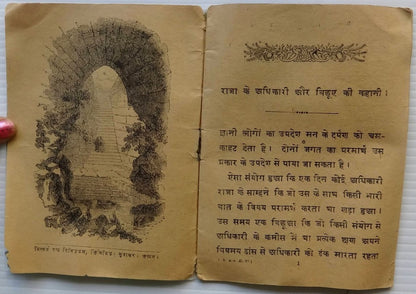 राजा के अधिकारी और बिछूए की कहानी।
ज्ञानी लोगों का उपदेश मन के दर्पण को चम-
काहट देता है। दोनों जगत का परमार्थ उस
प्रकार के उपदेश से पाया जा सकता है।
ऐसा संयोग हुआ कि एक दिन कोई अधिकारी
राजा के साम्हने कि जो उस के साथ किसी भारी
बात के विषय परामर्श करता था खड़ा हुआ।
उस समय एक बिछूआ कि जो किसी संयोग से
अधिकारी के कमीस में था प्रत्येक क्षण अपने
विषमय डांस से अधिकारी को डंक मारता रहता
1